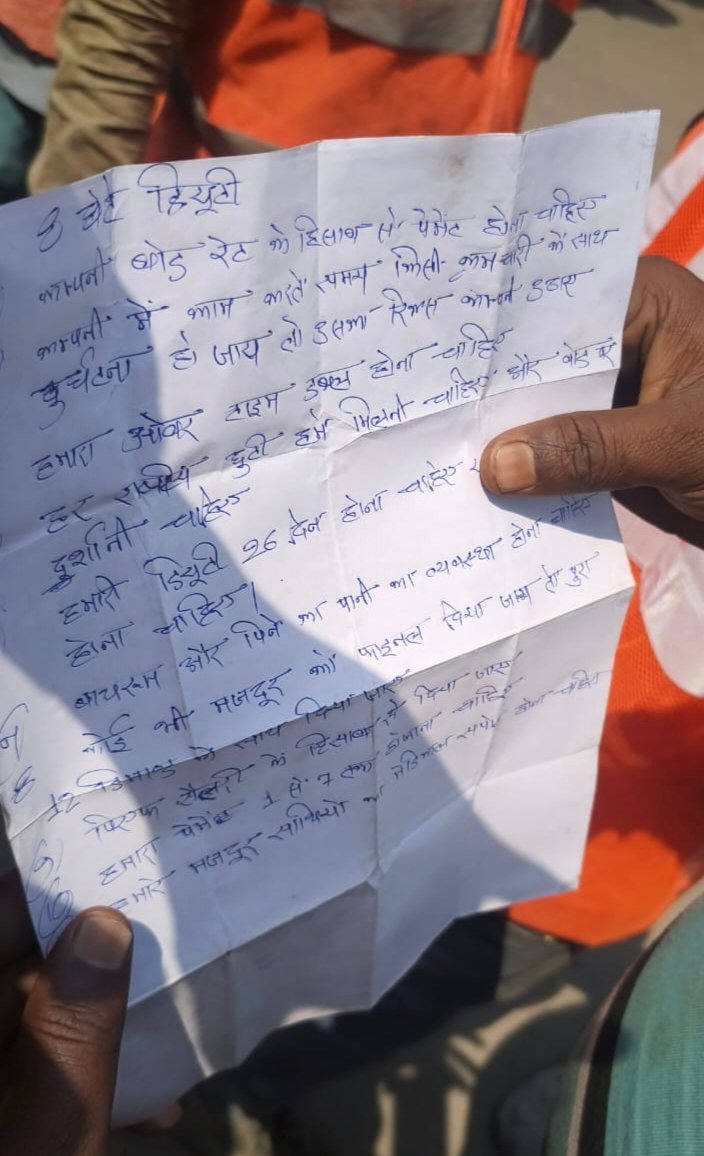 8 घंटे डियुटी
कम्पनी बोर्ड रेट के हिसाब से पेमेंट होना चाहिए
कम्पनी में काम करते समय किसी कर्मचारी के साथ
दुर्घटना हो जाय तो उसका रिक्स कम्पनी उठाए
हमारा ओवर टाइम डबल होना चाहिए
हर राष्ट्रीय छुटी हमें मिलनी चाहिए और बोर्ड पर
दर्शानी चाहिए
हमारी डियुटी 26 दिन होना चाहिए
होना चाहिए।
बाथरूम और पिने का पानी का व्यवस्था होना चाहिए
8 कोई भी मजदूर को फाइनल किया जाय तो पुरा
12 डिमांड के साथ दिया जाए
9) पिएफ सैलरी के हिसाब से दिया जाए
10 हमारा पेमेंट 1 से 7 तक होजाना चाहिए
हमारे मजदूर साथियो का मेडिकल सपोर्ट होना चाहिए